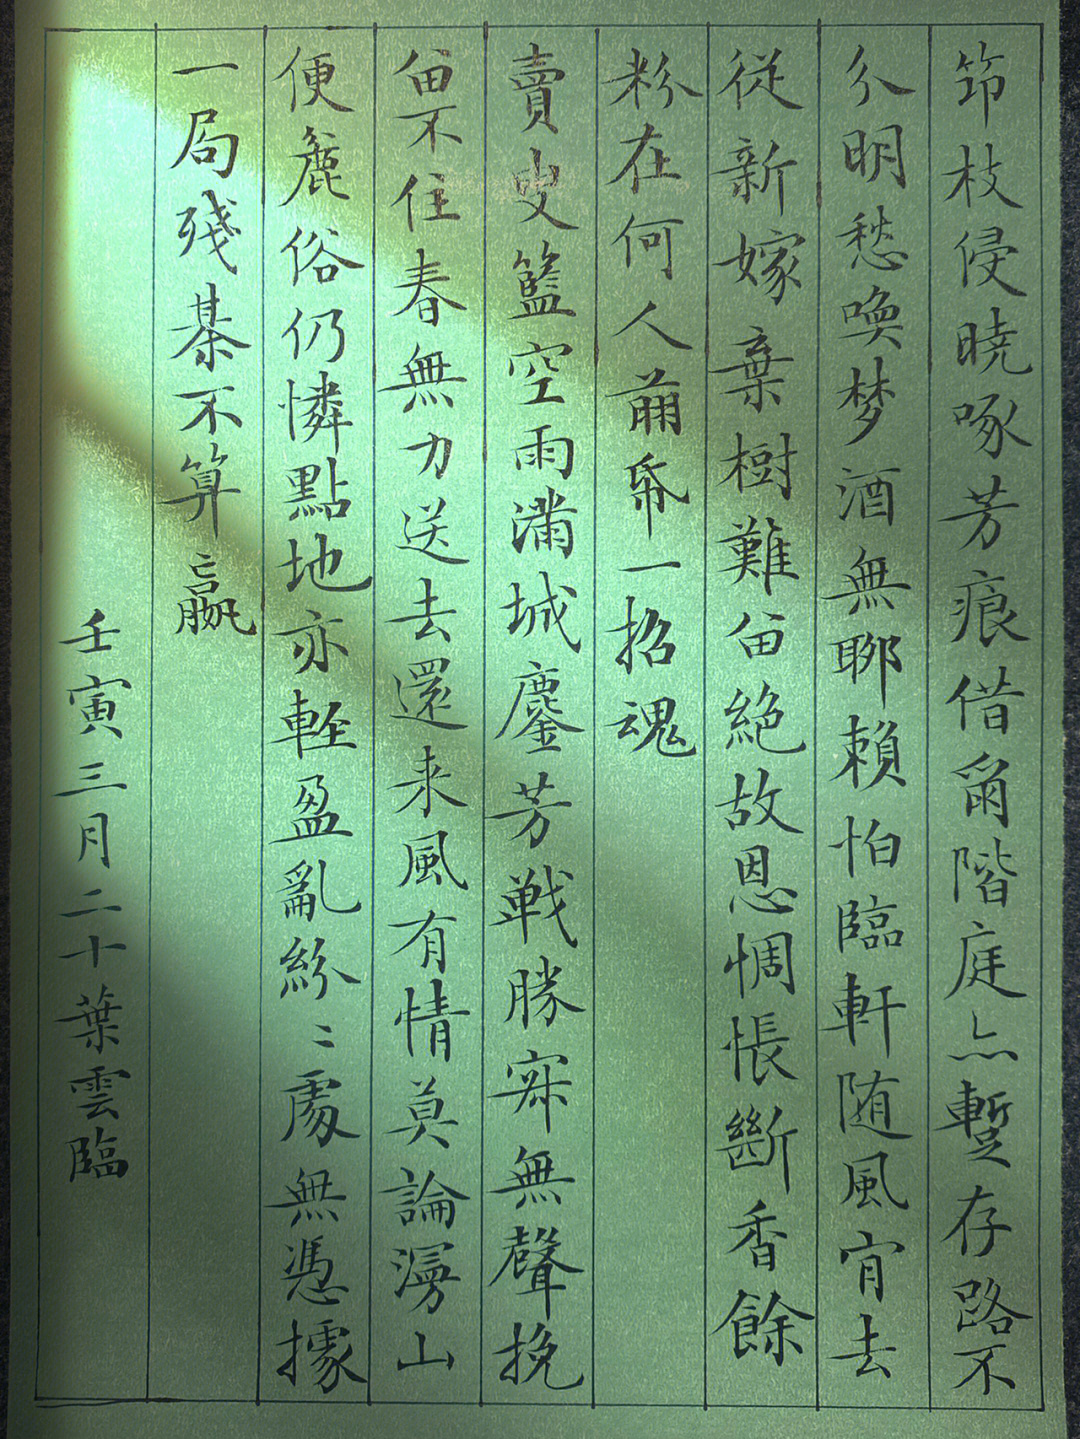 節枝侵曉啄芳痕借爾階庭亦暫存路不
分明愁喚梦酒無聊賴怕臨軒随風肎去
從新嫁棄樹難留絕故恩惆悵斷香餘
粉在何人前帋一招魂
賣叟籃空雨滿城鏖芳戰勝寂無聲挽
留不住春無力送去還来風有情莫論漫山
便麄俗仍憐點地亦輕盈亂紛〻處無憑據
一局殘棊不算贏
壬寅三月二十葉雲臨